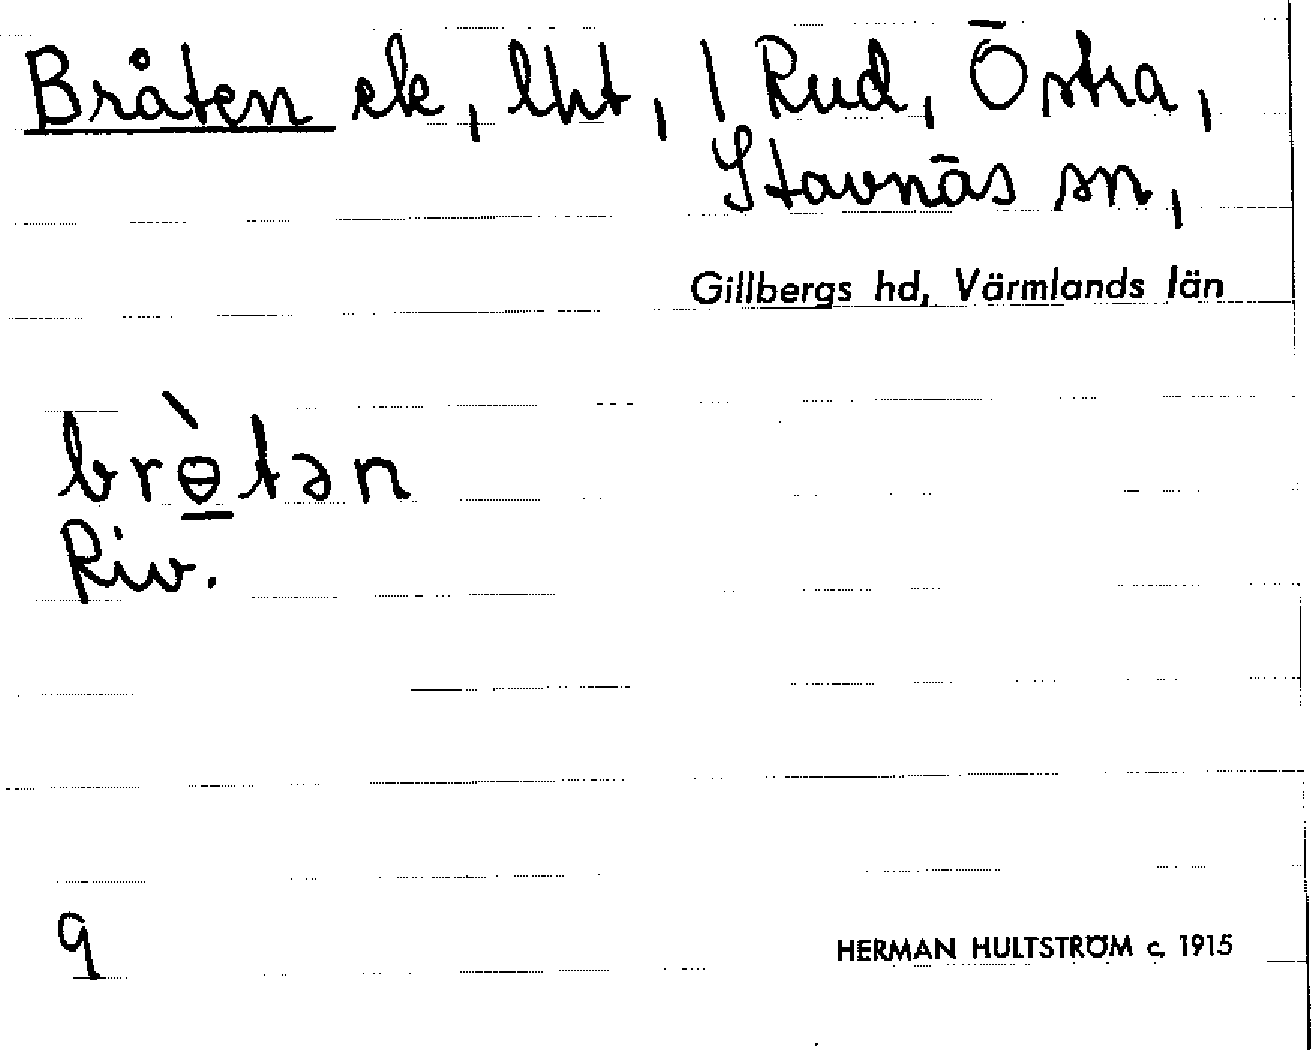 Bråten ek, lht, 1 Rud, Östra,
Stavnäs sn,
Gillbergs hd, Värmlands län
brɵ̠̀tən
Riv.
9
HERMAN HULTSTRÖM c. 1915